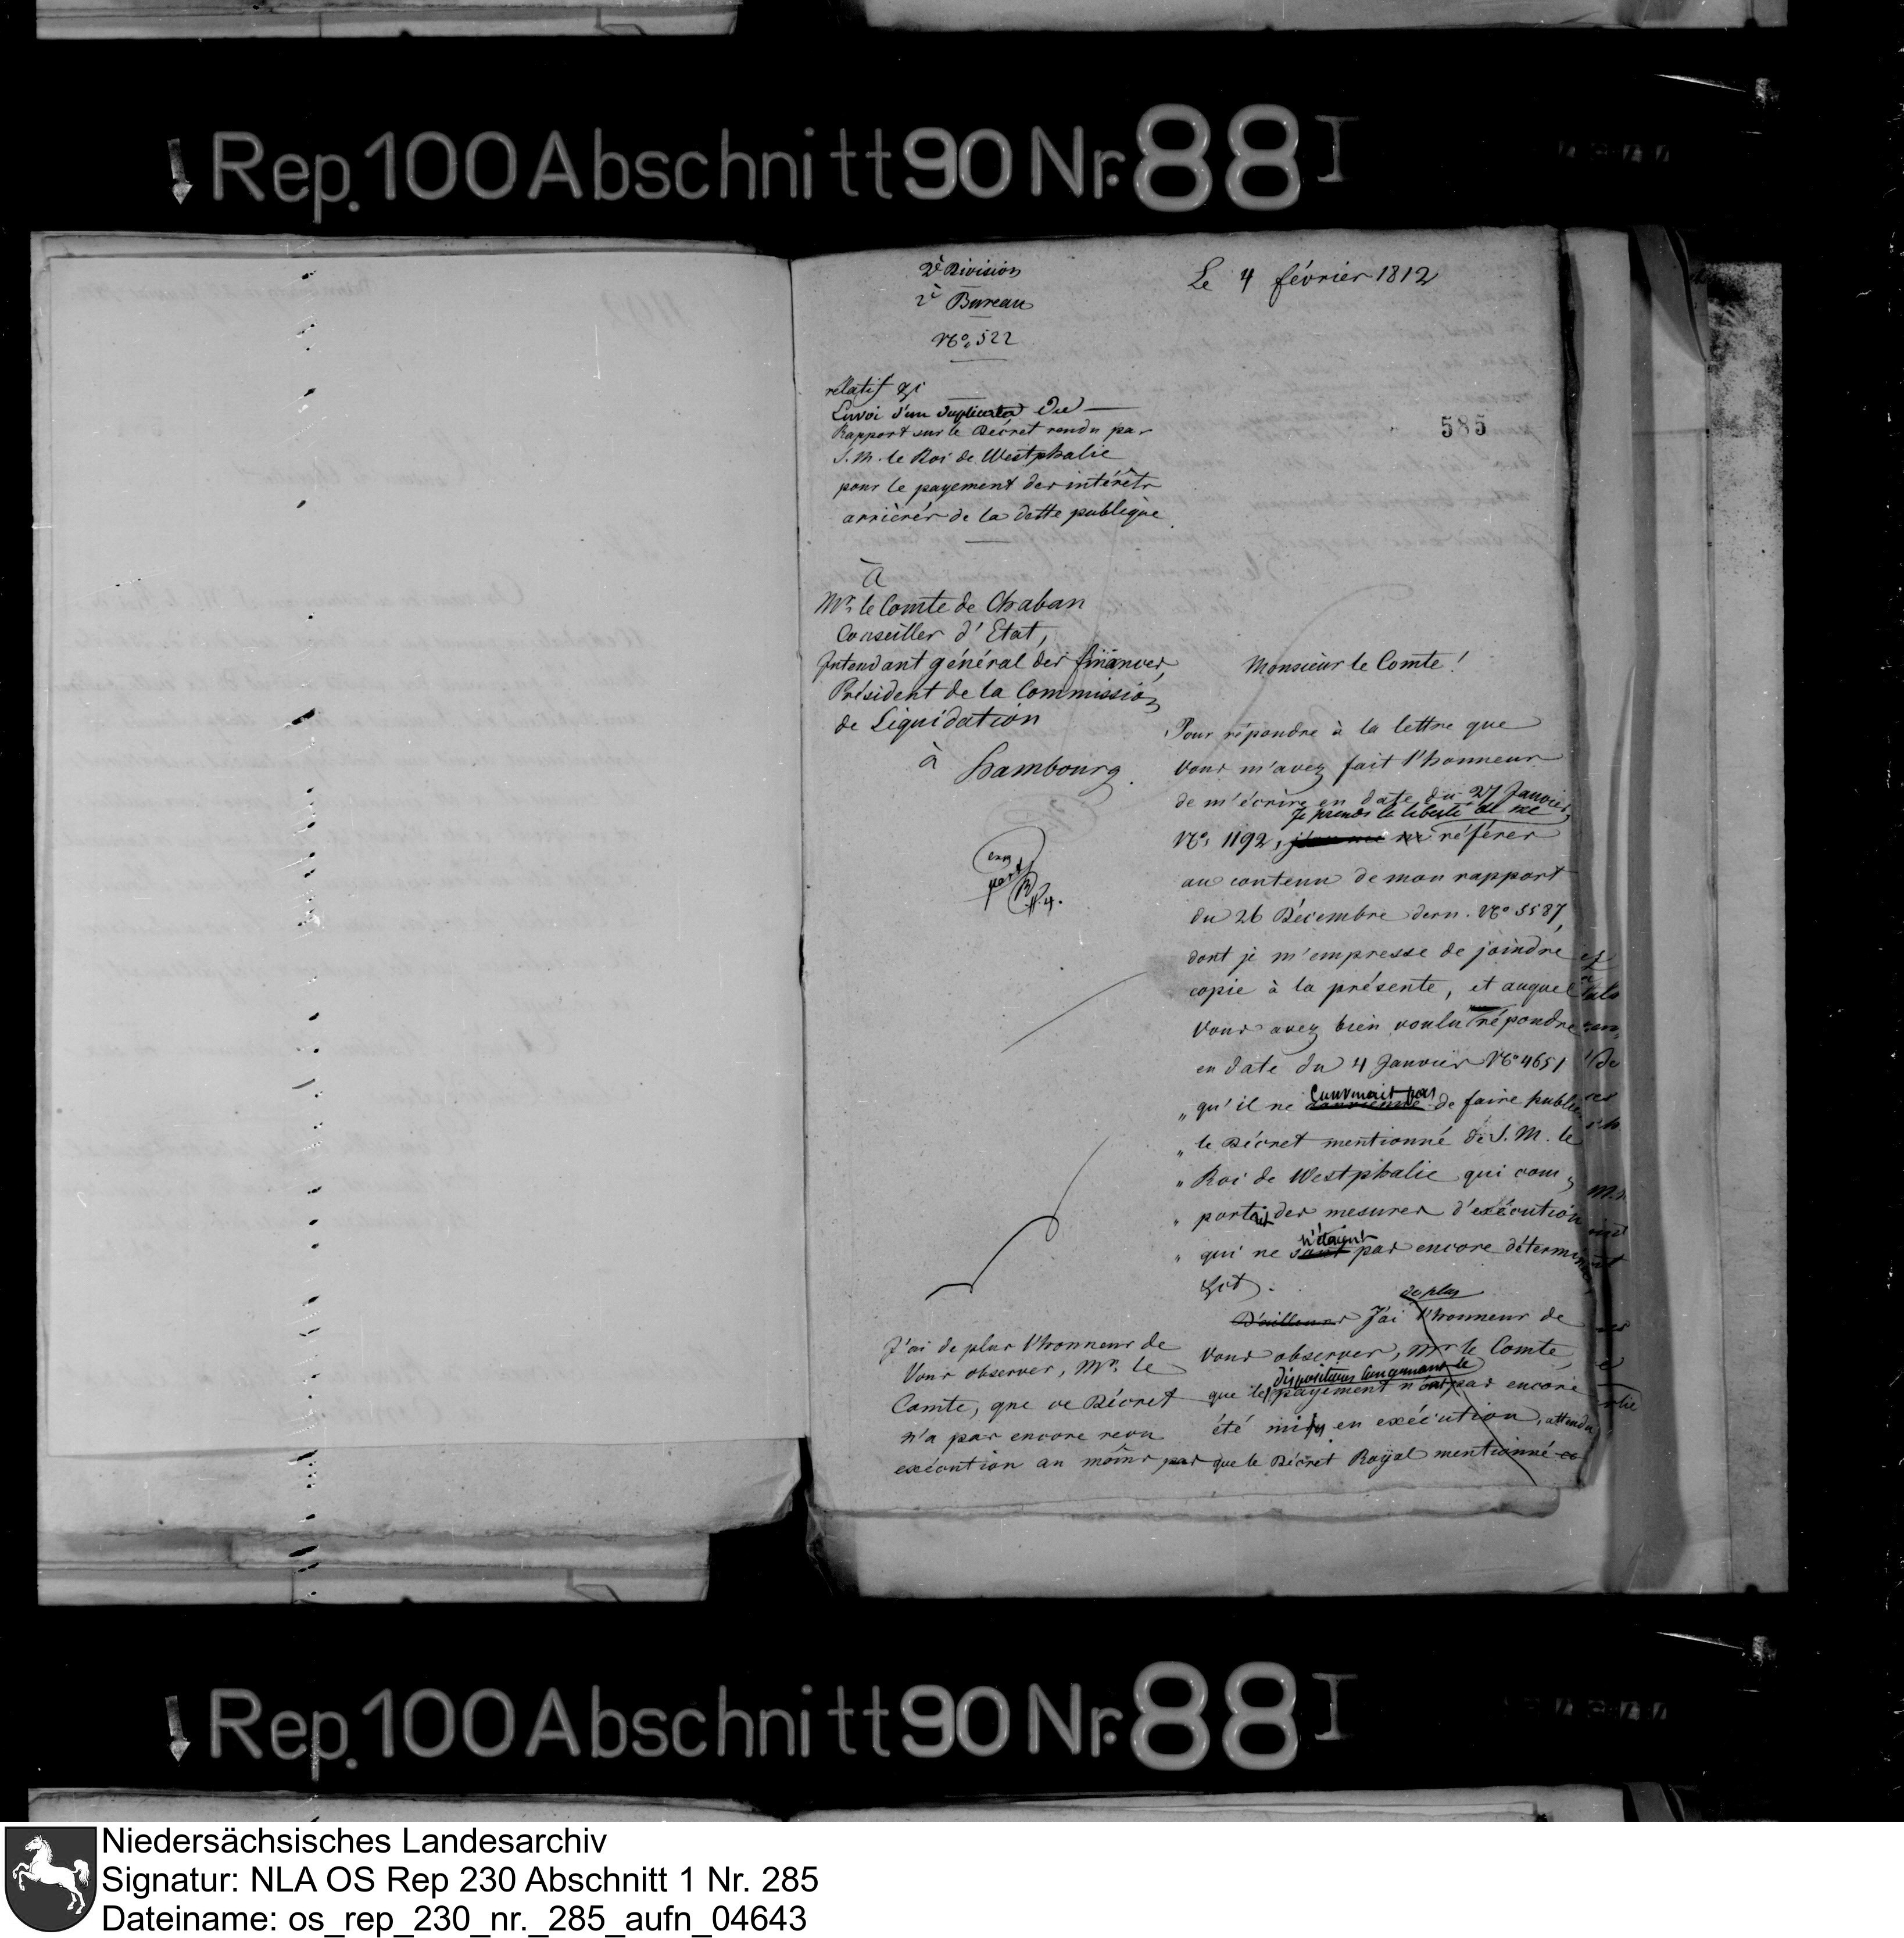 Rep. 100 Abschnitt 90 Nr. 88 I
2e Division
2e Bureau
No. 522
Le 4 février 1812
585
relatif
Envoi d'un duplicata du
Rapport sur le Décret rendu par
S. M. le Roi de Westphalie
pour le payement des intérêts
arriérés de la dette publique
À
Mr. le Comte de Chaban
Conseiller d'Etat,
Intendant général des finances,
Président de la Commission
de Liquidation
à Hambourg.
Monsieur le Comte!
Pour répondre à la lettre que
Vous m'avez fait l'honneur
de m'écrire en date du 27 Janvier,
Je prends la liberté de me
No. 1192, référer
au contenu de mon rapport
du 26 Décembre dern. No 5587,
dont je m'empresse de joindre
copie à la présente, et auquel
Vous avez bien voulu répondre
en date du 4 Janvier No 4651
convenait pas
„ qu'il ne convienne de faire publier
„ le Décret mentionné de S. M. le
„ Roi de Westphalie qui com
„ portait des mesures d'exécution
n'étaient
„ qui ne sont pas encore déterminées
de plus
D'ailleurs J'ai l'honneur de
Vous observer, Mr le Comte,
dispositions concernant le
que les payement n'ont pas encore
été mises en exécution, attendu
que le Décret Royal mentionné
J'ai de plus l'honneur de
Vous observer, Mr. le
Comte, que ce Décret
n'a pas encore recu
exécution au moins par
Rep. 100 Abschnitt 90 Nr. 88 I
Niedersächsisches Landesarchiv
Signatur: NLA OS Rep 230 Abschnitt 1 Nr. 285
Dateiname: os_rep_230_nr._285_aufn_04643